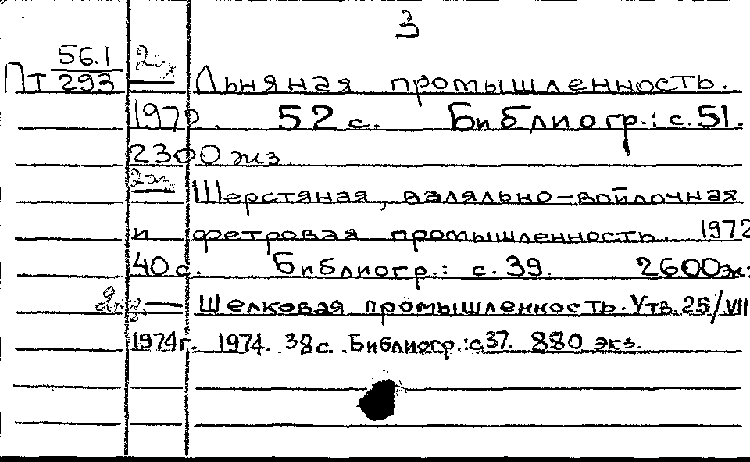 3
Пт 56.1/293 2эк — Льняная промышленность.
1972. 52 с. Библиогр.: с. 51.
2300 экз
— Шерстяная, валяльно-войлочная
и фетровая промышленность. 1972
40 с. Библиогр.: с. 39. 2600 эк
— Шелковая промышленность. Утв. 25/VII
1974г. 1974. 38 с. Библиогр.: с37. 880 экз.